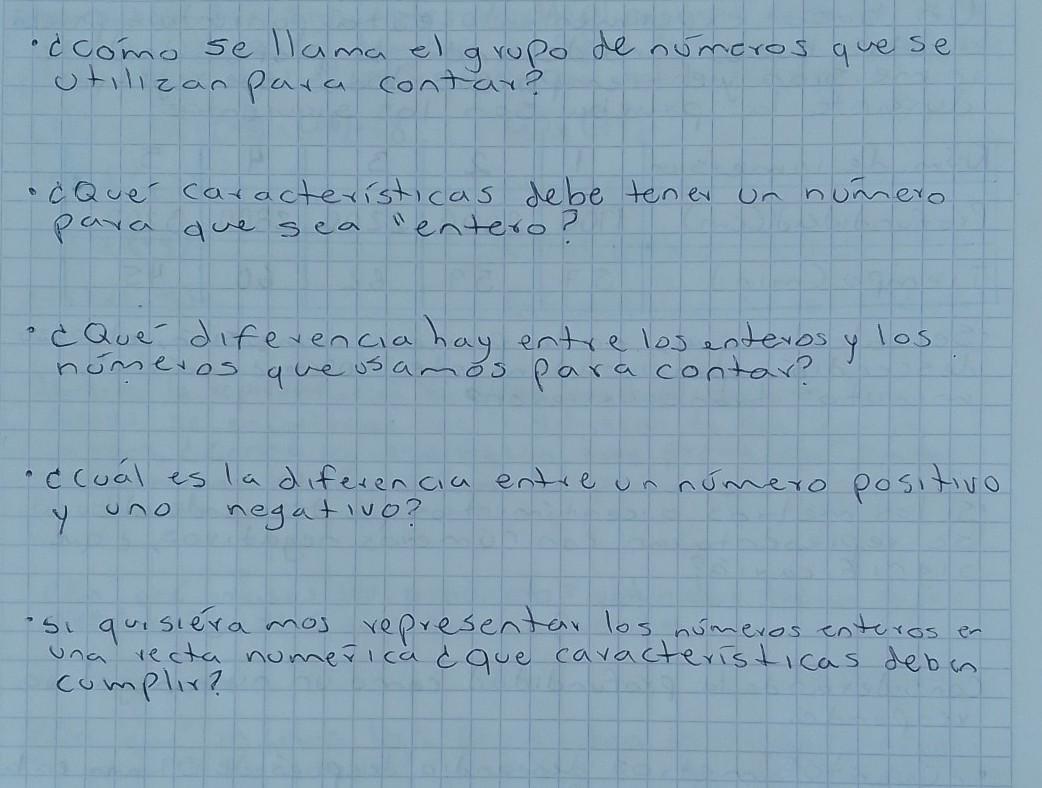 • ¿cómo se llama el grupo de números que se
utilizan para contar?
• ¿Qué características debe tener un número
para que sea "entero?
• ¿Qué diferencia hay entre los enteros y los
números que usamos para contar?
• ¿cuál es la diferencia entre un número positivo
y uno negativo?
• si quisiéramos representar los números enteros en
una recta numérica ¿que características deben
cumplir?